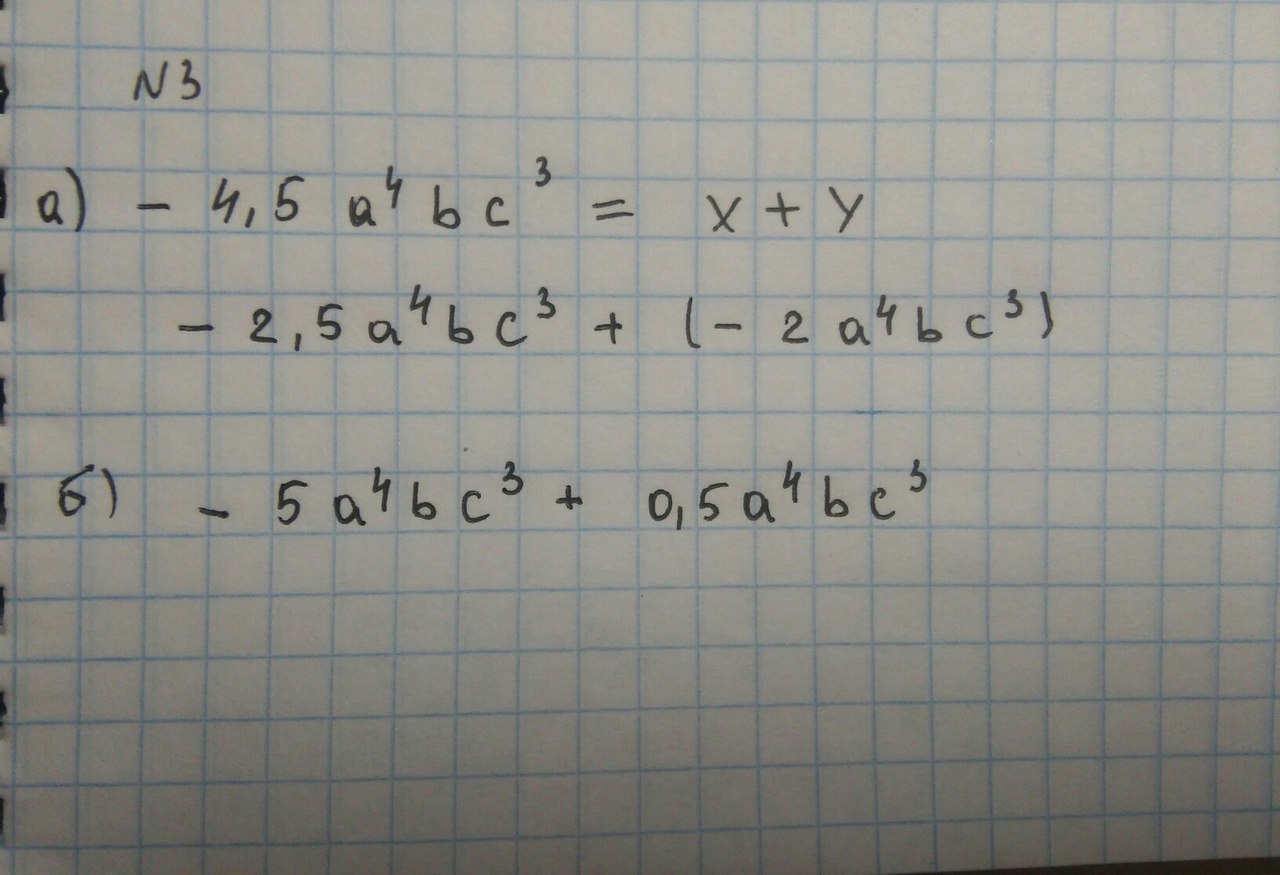 N3
а) - 4,5 a⁴ b c³ = x + y
- 2,5 a⁴ b c³ + (- 2 a⁴ b c³)
б) - 5 a⁴ b c³ + 0,5 a⁴ b c³